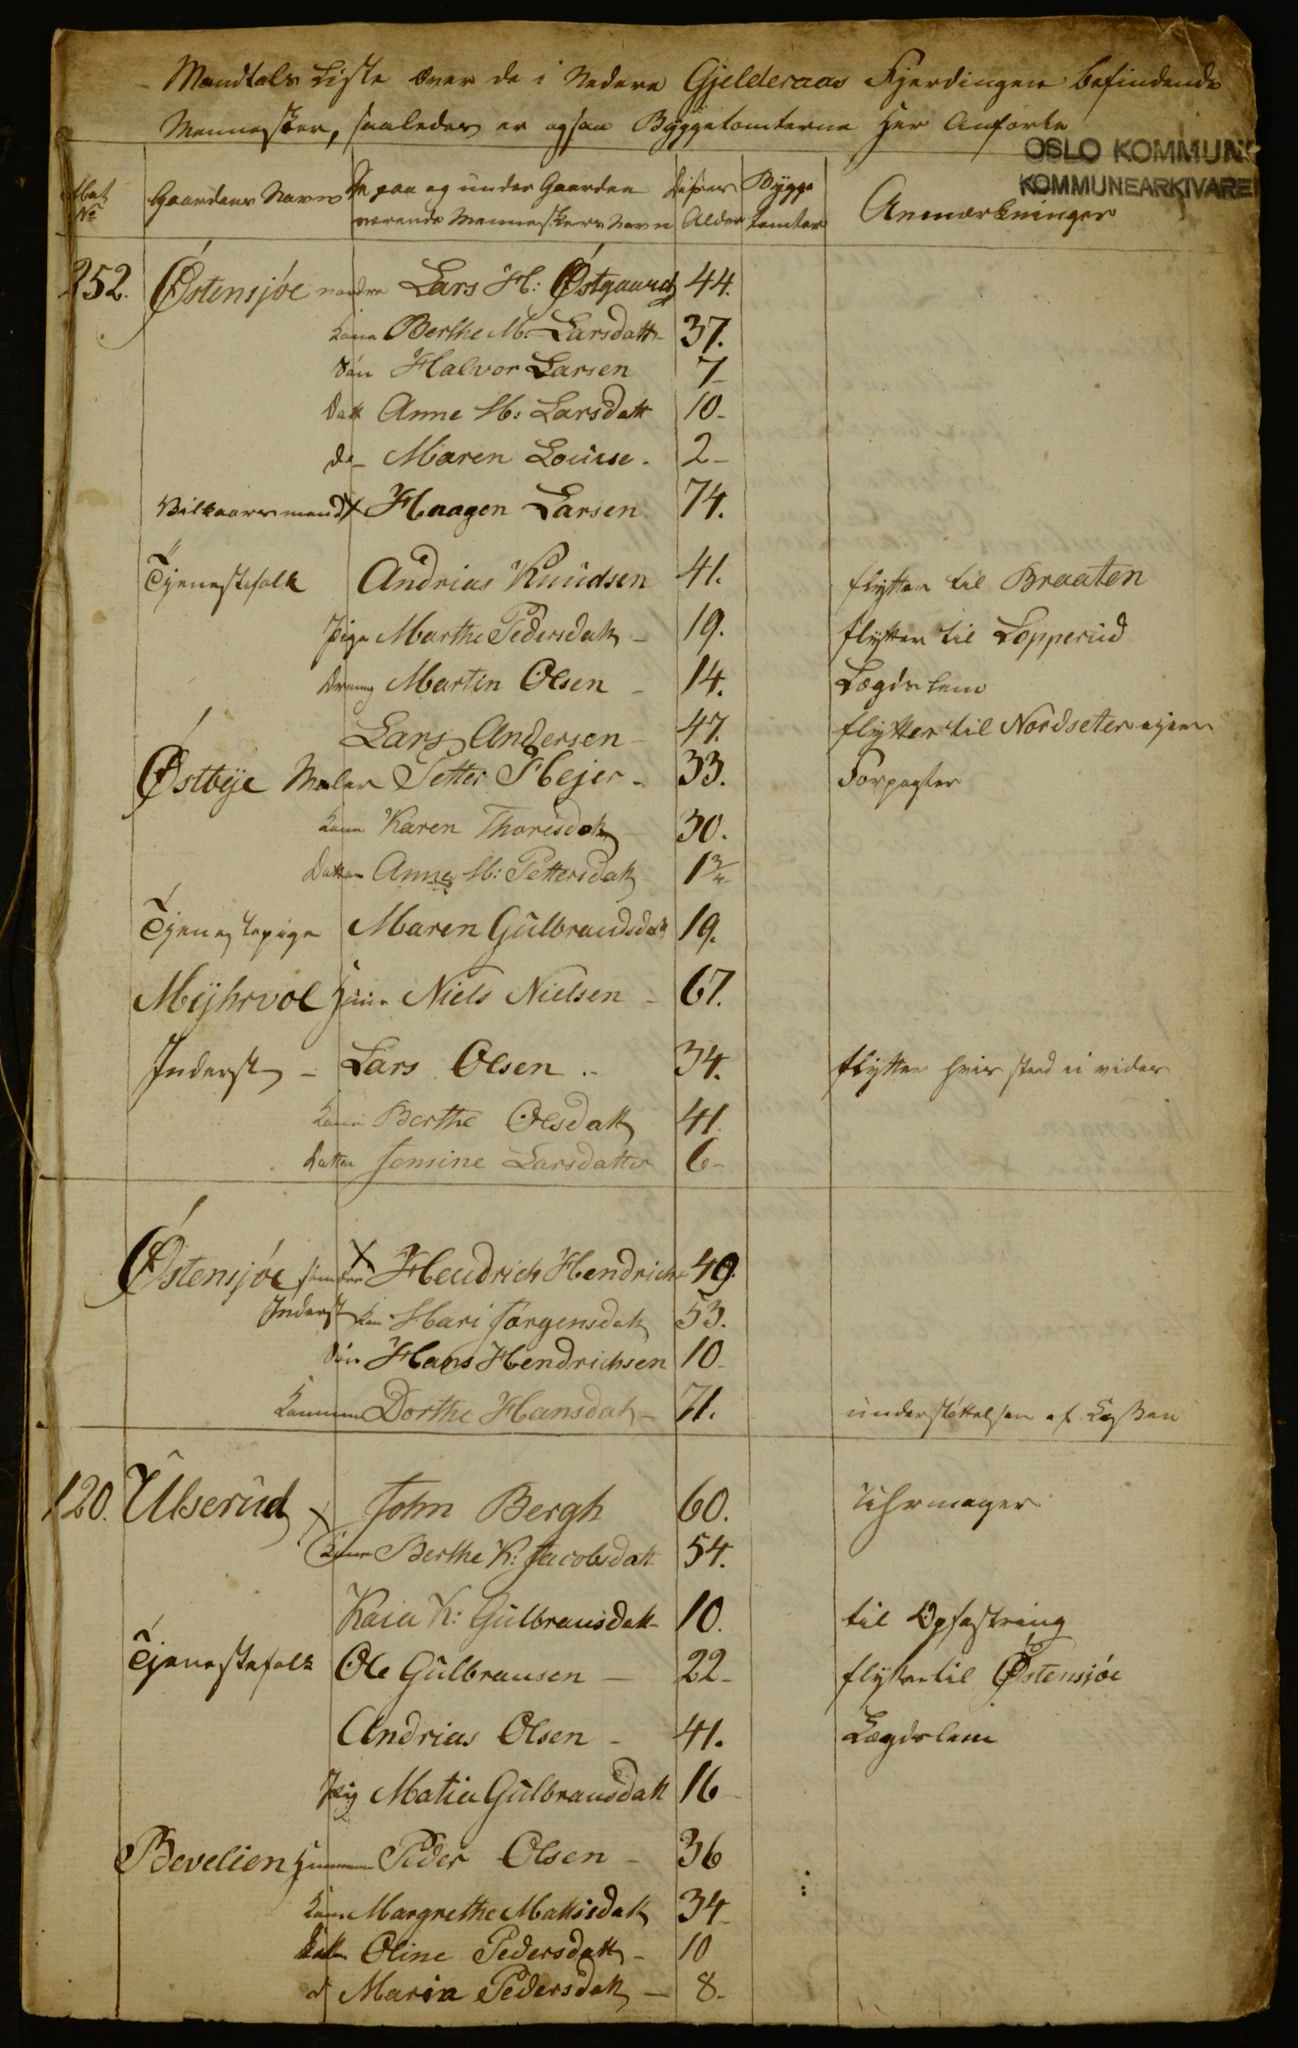 Mandtals Liste over de i Nedere Gjelderaas Fjerdingen befindende
Mennesker, saaledes er ogsaa Byggetomterne her Anførte
OSLO KOMMUNE
KOMMUNEARKIVARE
No Gaardens Navn De paa og under Gaarden værende Menneskers Navn Disses Alder Bygge tomter Anmærkninger
252. Østensjøe nordre Lars H: Østgaard 44.
Kone Berthe M. Larsdatt 37.
Søn Halvor Larsen 7-
Datt Anne M: Larsdatt 10-
do- Maren Louise. 2-
Vilkaarsmand x Haagen Larsen 74.
Tjenestefolk Andrias Knudsen 41. flytter til Braaten
Pige Marthe Pedersdatt - 19. flytter til Lopperud
Dreng Martin Olsen - 14. Lægdslem
Lars Andersen - 47. flytter til Nordseter
Østbye Maler Petter Hejer - 33. Forpagter
Kone Karen Thorisdatt - 30.
Datter Anne M: Pettersdatt 1 3/4
Tjenestepige Maren Gulbrandsdatt 19.
Myhrvol Niels Nielsen - 67.
Inderst - Lars Olsen .. 34. flytter hvis sted ei vides
Kone Berthe Olsdatt 41.
Datter Jensine Larsdatter 6-
Østensjøe søndre x Hendrich Hendrichs 49.
Inderst Kone Mari Jørgensdatt 53.
Søn Hans Hendrichsen 10-
Dorthe Hansdatt - 71. understøttelsen af Kassen
120. Ulserud x John Bergh 60. Uhrmager
Kone Berthe K: Jacobsdatt 54.
Kaia K: Gulbransdatt 10. til Opfostring
Tjenestefolk Ole Gulbransen - 22- flytter til Østensjøe
Andrias Olsen - 41. Lægdslem
Pig Matia Gulbransdatt 16
Bevelien Huusmand Peder Olsen - 36
Kone Margrethe Mattisdatt 34-
Datter Oline Pedersdatt - 10
d Maria Pedersdatt - 8-